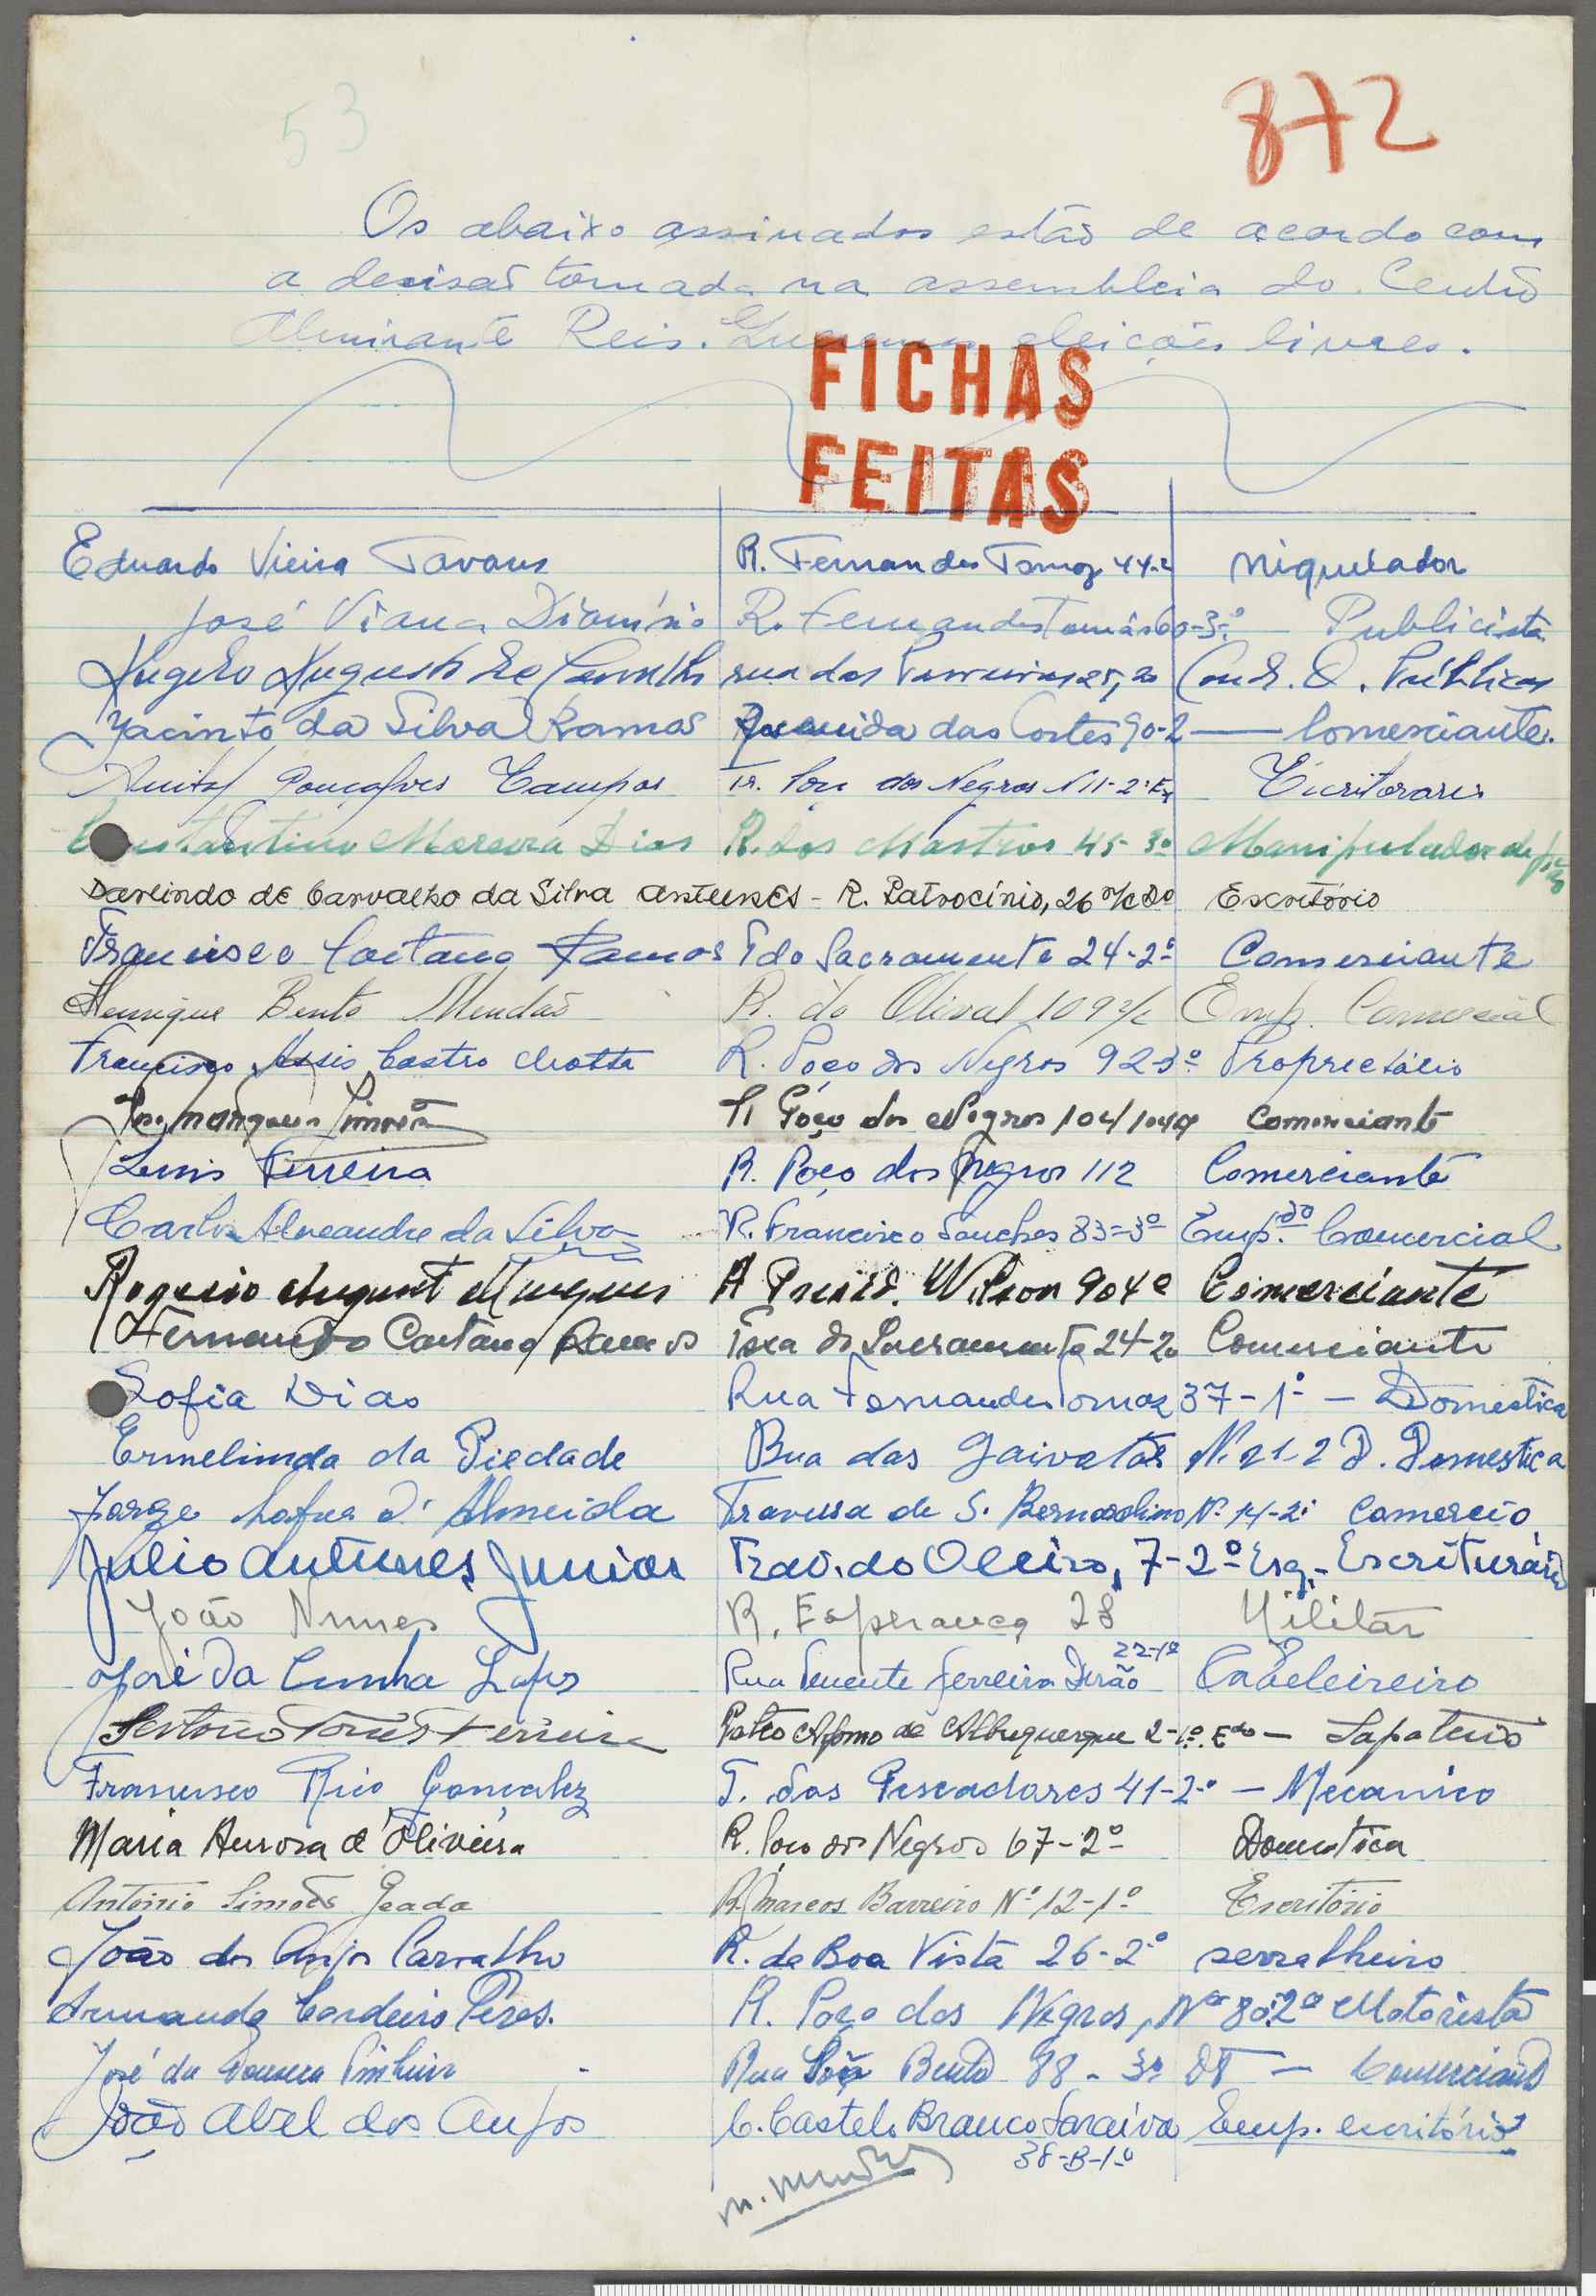 53
872
Os abaixo assinados estão de acordo com
a decisão tomada na assembleia do Centro
Almirante Reis. Queremos eleições livres.
FICHAS
FEITAS
Eduardo Vieira Tavares R. Fernandes Tomaz 44-2 Niquelador
José Viana Dionísio R. Fernandes Tomás 60-3º Publicista
Angelo Augusto de Carvalho rua das 25, 2º Cond. O. Públicas
Jacinto da Silva Ramos Avenida das Cortes 90-2 — Comerciante.
Anita Gonçalves Campos Tr. Poço dos Negros N 11-2º Eq
Constantino Moreira Dias R. dos Mastros 45-3º Manipulador de
Darlindo de Carvalho da Silva Antunes - R. Patrocínio, 26 r/c Do Escritório
Francisco Caetano Ramos T do Sacramento 24-2º Comerciante
Henrique Bento Mendão R. do Olival 109 r/c Emp. Comercial
Francisco Assis Castro Motta R. Poço dos Negros 92-3º Proprietário
José Marques Simões R Poço dos Negros 104/104A Comerciante
Luis Ferreira R. Poço dos Negros 112 Comerciante
Carlos Alexandre da Silva R. Francisco Sanches 83-3º Empdo. Comercial
Rogerio August Marques A Presid. Wilson 90 4º Comerciante
Fernando Caetano Ramos Taxa do Sacramento 24-2º Comerciante
Sofia Dias Rua Fernandes Tomaz 37-1º - Domestica
Ermelinda da Piedade Rua das Gaivotas N. 21-2 D. Domestica
Jorge d'Almeida Travessa de S. Bernardino Nº 14-2º Comercio
Julio Antunes Junior Trav. do Oleiro, 7-2º Esq. - Escriturário
João Nunes R. Esperança 28 Militar
José da Cunha Lopes Rua Tenente Ferreira Durão 22-1º Cabeleireiro
Ferreira Pateo Afonso de Albuquerque 2-1º. Edo - Sapateiro
Francisco Rico Gonzalez T. dos Pescadores 41-2º - Mecanico
Maria Aurora d'Oliveira R. Poço dos Negros 67-2º Domestica
Antonio Simões Geada R. Marcos Barreiro Nº 12-1º Escritório
João dos Anjos Carvalho R. da Boa Vista 26-2º serralheiro
Armando Cordeiro Pires. R. Poço dos Negros, Nº 80:2º Motorista
José da Pinheiro Rua São Bento 98-3º DT - Comerciante
João Abel dos Anjos C. Castelo Branco Saraiva Emp. escritório
38-B-1º
M. Mendes